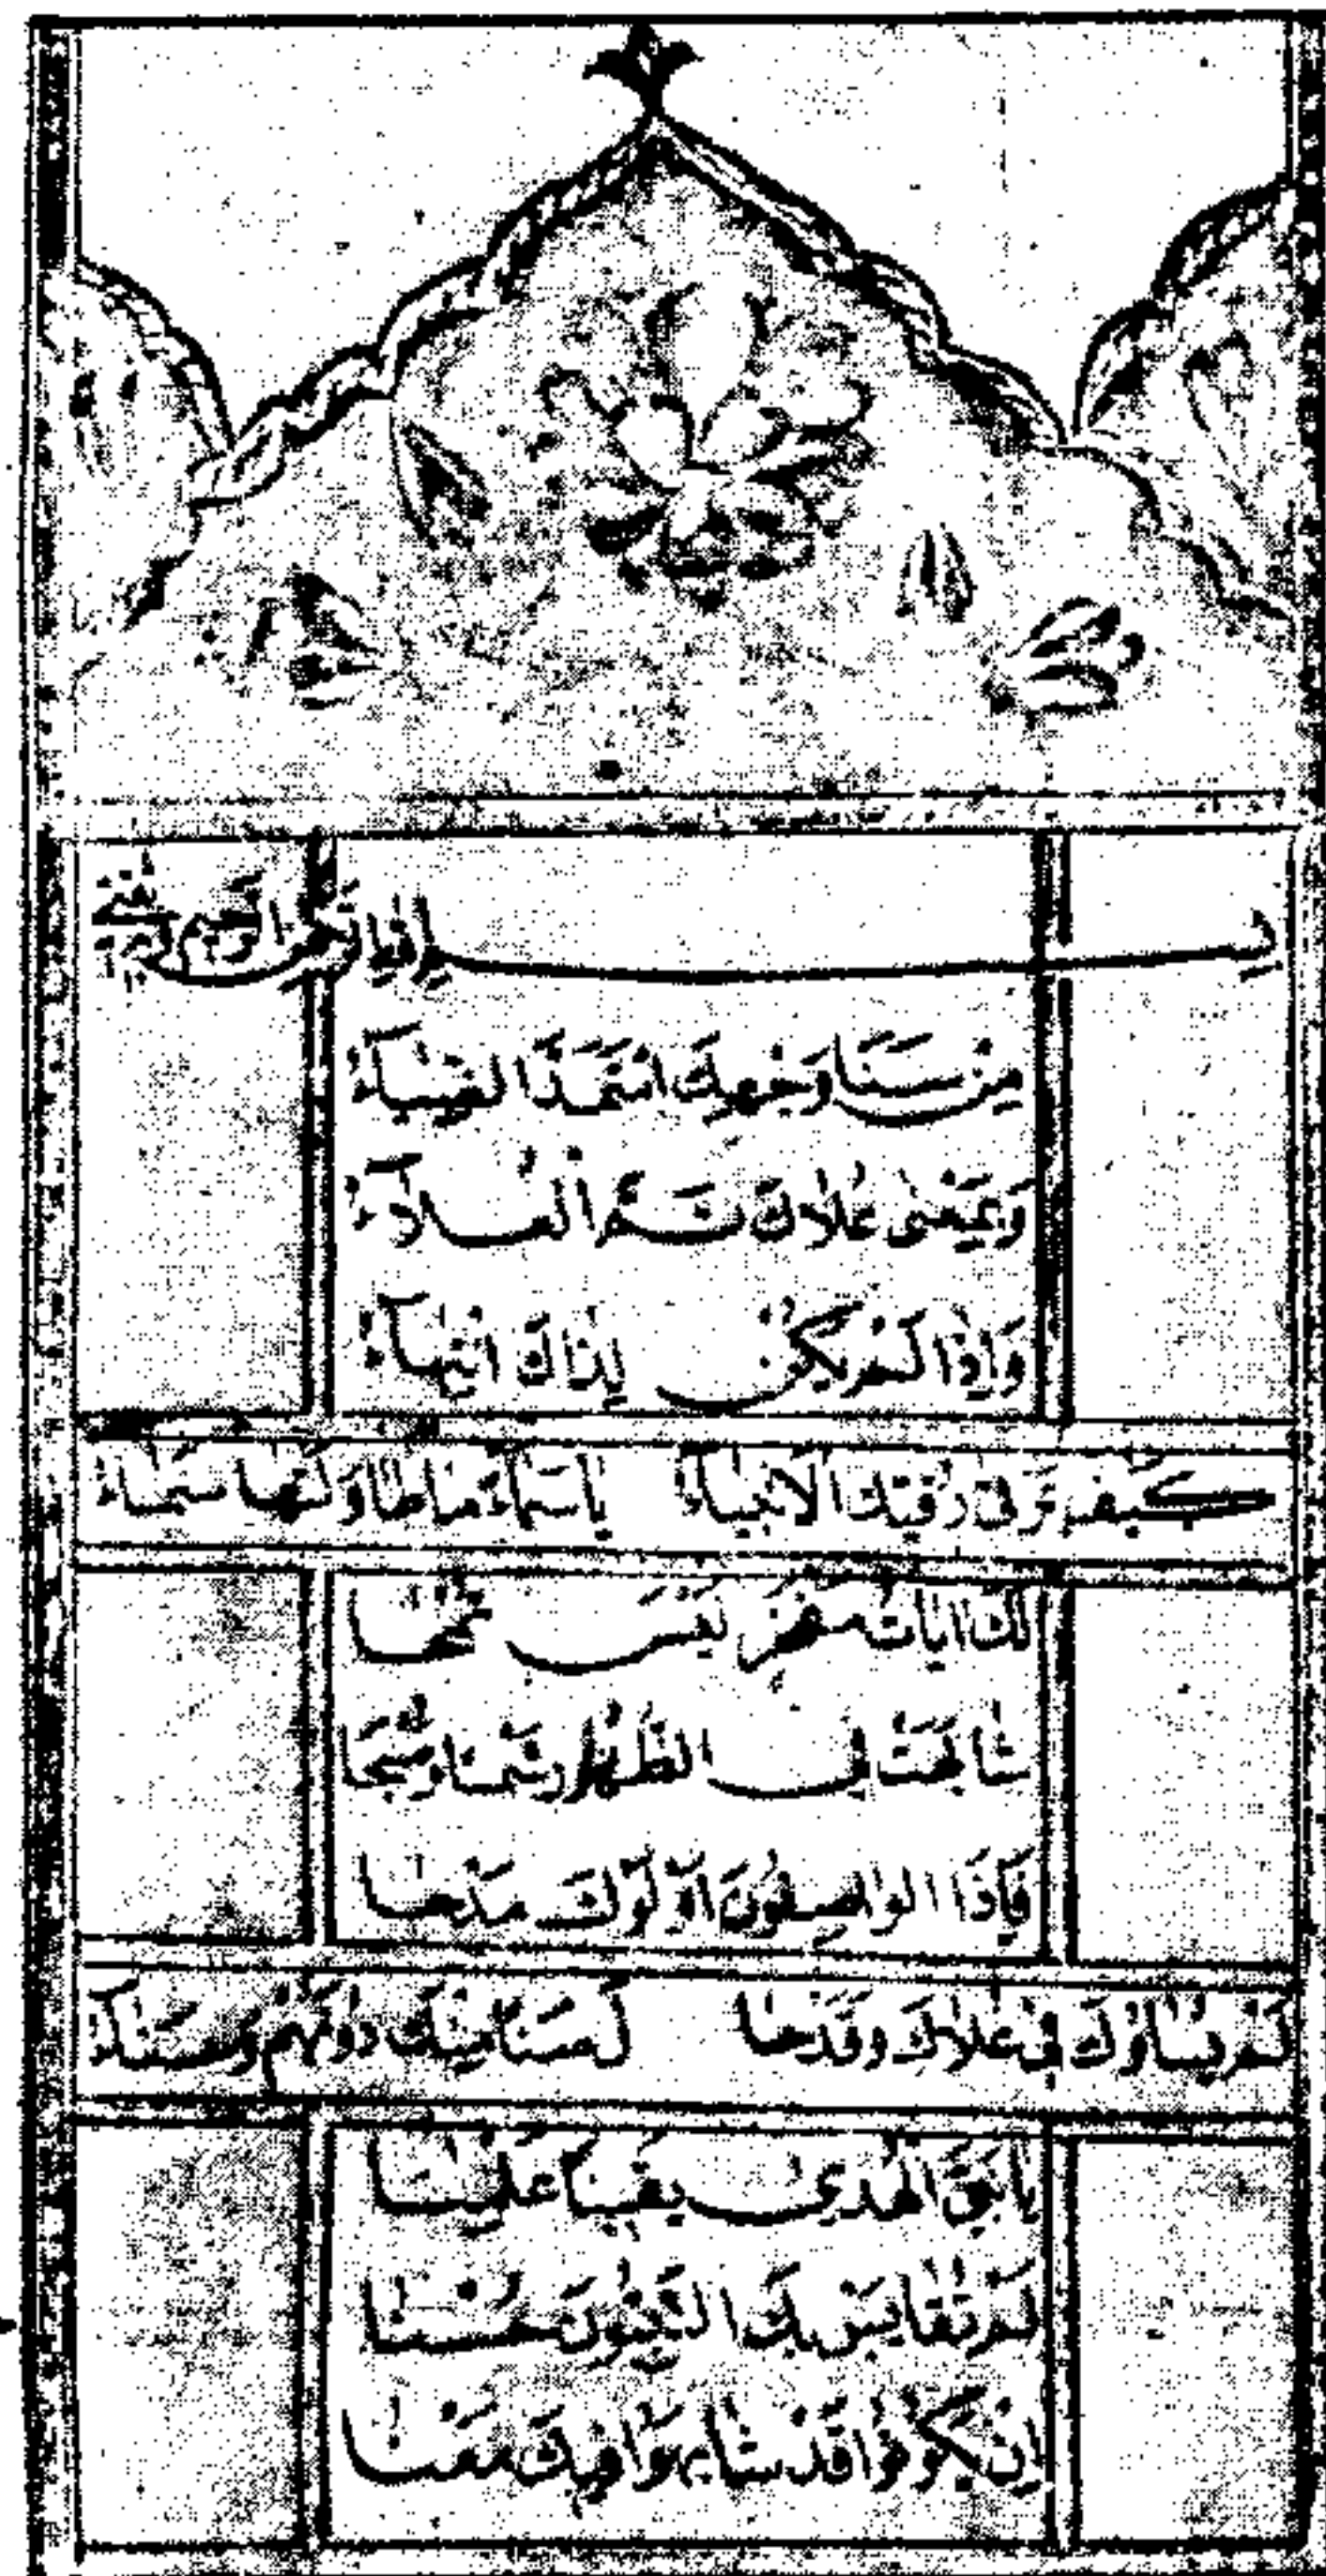 بسم الله الرحمن الرحيم
مِنْ سَنَا وَجْهِكَ اسْتَمَدَّ الضِّيَآءُ
وَبِمَعْنٰى عُلَاكَ تَمَّ الْعَلَآءُ
وَاِذَا لَمْ يَكُنْ لِذَاكَ انْتِهَآءُ
كَيْفَ تَرْقٰى رُقِيَّكَ الْاَنْبِيَاءُ يَا سَمَاءً مَا طَاوَلَتْهَا سَمَاءُ
لَكَ اٰيَاتُ مَفْخَرٍ لَيْسَ تُمْحَا
شَابَهَتْ فِي الظُّهُورِ شَمْسًا وَصُبْحَا
فَاِذَا الْوَاصِفُونَ اَوْلَوْكَ مَدْحًا
لَمْ يُسَاوُوكَ فِي عُلَاكَ وَقَدْ حَا لَ سَنًا مِنْكَ دُونَهُمْ وَسَنَآءُ
يَا نَبِيَّ الْهُدٰى يَقِينًا عَلِمْنَا
لَمْ يُقَايِسْ بِكَ النَّبِيُّونَ حُسْنًا
اِنْ يَكُونُوا قَدْ شَابَهُوا فِيكَ مَعْنًا